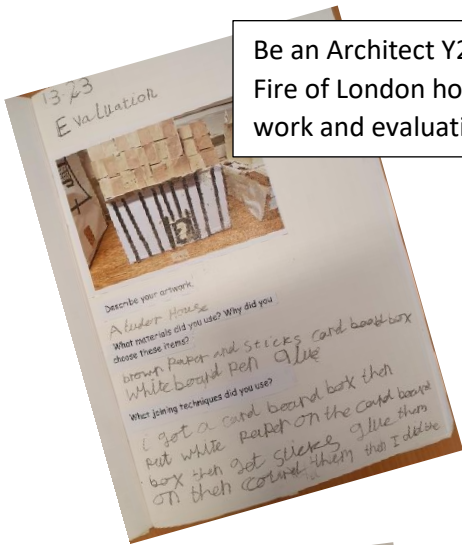 Be an Architect Y2
Fire of London ho
work and evaluati
13.23
Evaluation
Describe your artwork.
A tudor House
What materials did you use? Why did you
choose these items?
brown Paper and sticks card board box
white board pen glue
What joining techniques did you use?
i got a card board box then
put white paper on the card board
box then get sticks glue them
on then them then I did the